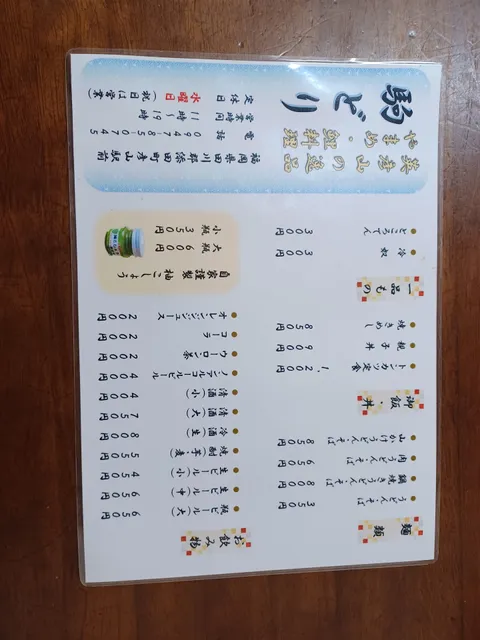 麺類
うどん・そば 350円
鍋焼きうどん・そば 800円
肉うどん・そば 650円
山かけうどん・そば 850円
御飯・丼
トンカツ定食 1,200円
親子丼 900円
焼きめし 850円
一品もの
冷奴 300円
ところてん 300円
お飲み物
瓶ビール(大) 650円
生ビール(中) 650円
生ビール(小) 450円
焼酎(芋・麦) 550円
冷酒(生) 800円
清酒(大) 750円
清酒(小) 400円
ノンアルコールビール 400円
ウーロン茶 200円
コーラ 200円
オレンジジュース 200円
自家謹製 柚こしょう
大瓶 600円
小瓶 350円
英彦山の逸品
やまめ・鯉料理
駒どり
福岡県田川郡添田町彦山駅前
電話
営業時間 11時〜19時
定休日 水曜日(祝日は営業)